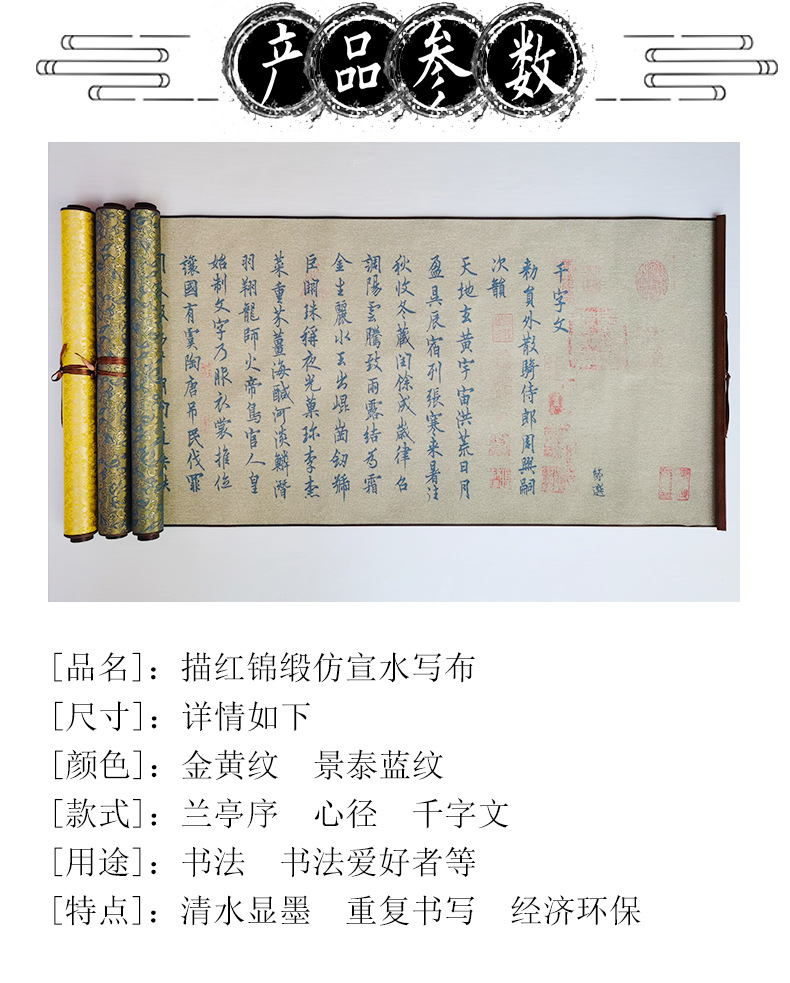 产品参数
千字文
勑員外散騎侍郎周興嗣
次韻
天地玄黃宇宙洪荒日月
盈昃辰宿列張寒来暑往
秋收冬藏閏餘成歲律呂
調陽雲騰致雨露結為霜
金生麗水玉出崐崗劒號
巨闕珠稱夜光菓珍李柰
菜重芥薑海醎河淡鱗潛
羽翔龍師火帝鳥官人皇
始制文字乃服衣裳推位
讓國有虞陶唐吊民伐罪
[品名]：描红锦缎仿宣水写布
[尺寸]：详情如下
[颜色]：金黄纹 景泰蓝纹
[款式]：兰亭序 心径 千字文
[用途]：书法 书法爱好者等
[特点]：清水显墨 重复书写 经济环保